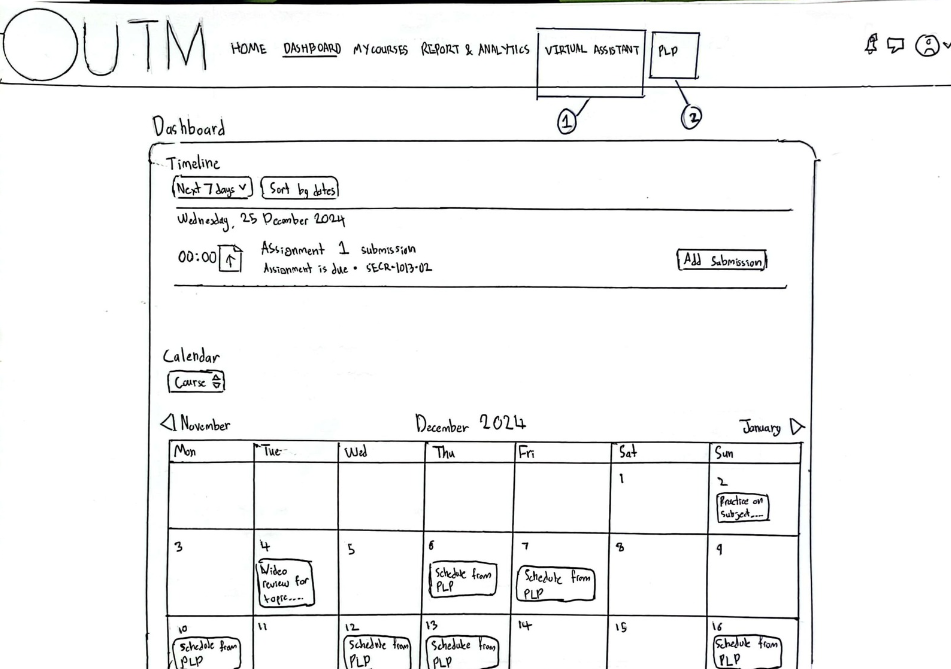 UTM
HOME DASHBOARD MY COURSES REPORT & ANALYTICS VIRTUAL ASSISTANT PLP
1 2
Dashboard
Timeline
Next 7 days Sort by dates
Wednesday, 25 December 2024
00:00 Assignment 1 submission
Assignment is due • SECR-1013-02
Add Submission
Calendar
Course
November December 2024 January
Mon Tue Wed Thu Fri Sat Sun
1 2
Practice on
subject....
3 4 5 6 7 8 9
Video
review for
topic....
Schedule from
PLP
Schedule from
PLP
10 11 12 13 14 15 16
Schedule from
PLP
Schedule from
PLP
Schedule from
PLP
Schedule from
PLP